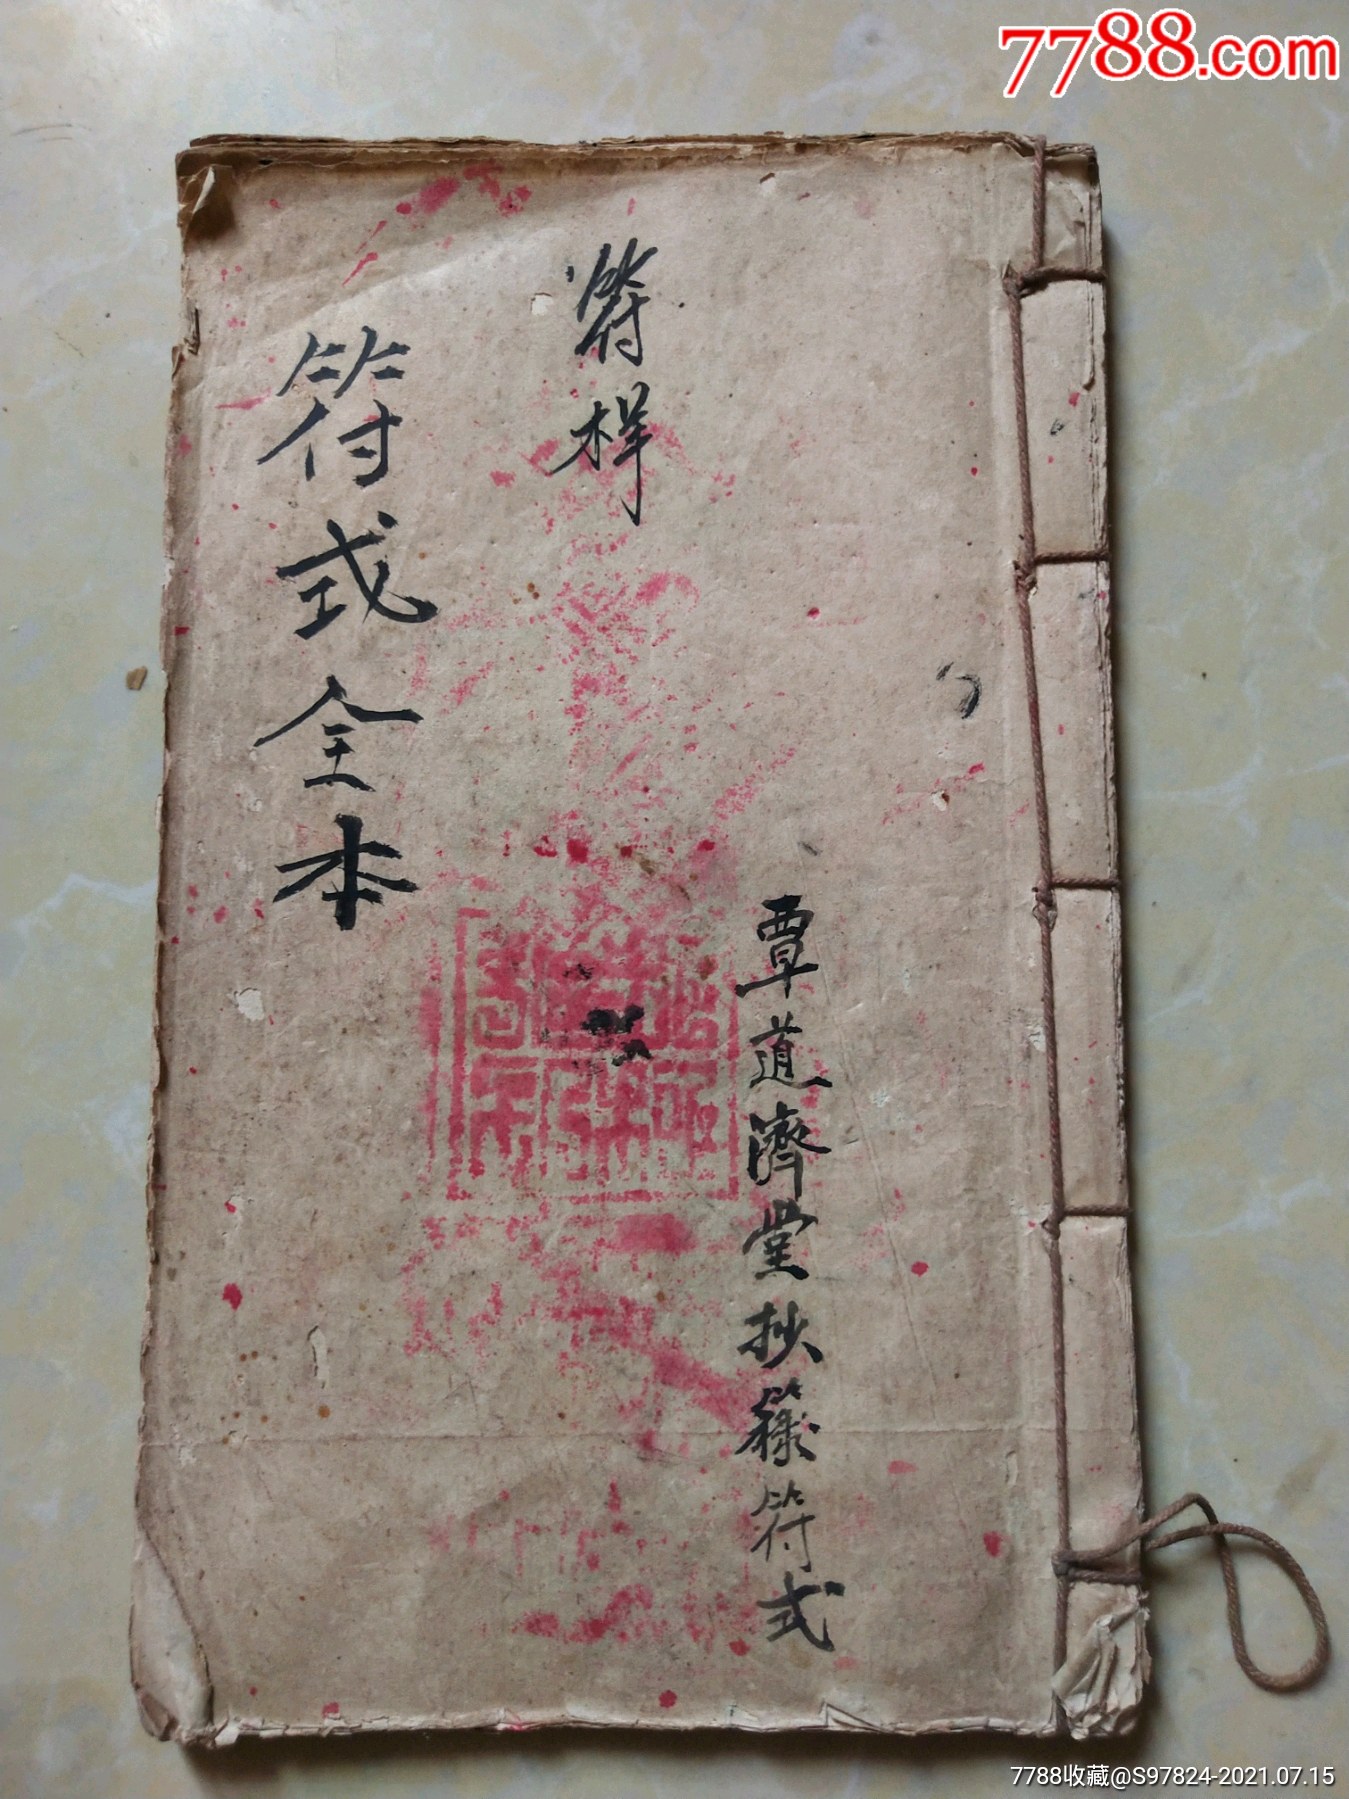 7788.com
符样
符式全本
覃道濟堂抄籙符式
7788收藏@S97824-2021.07.15